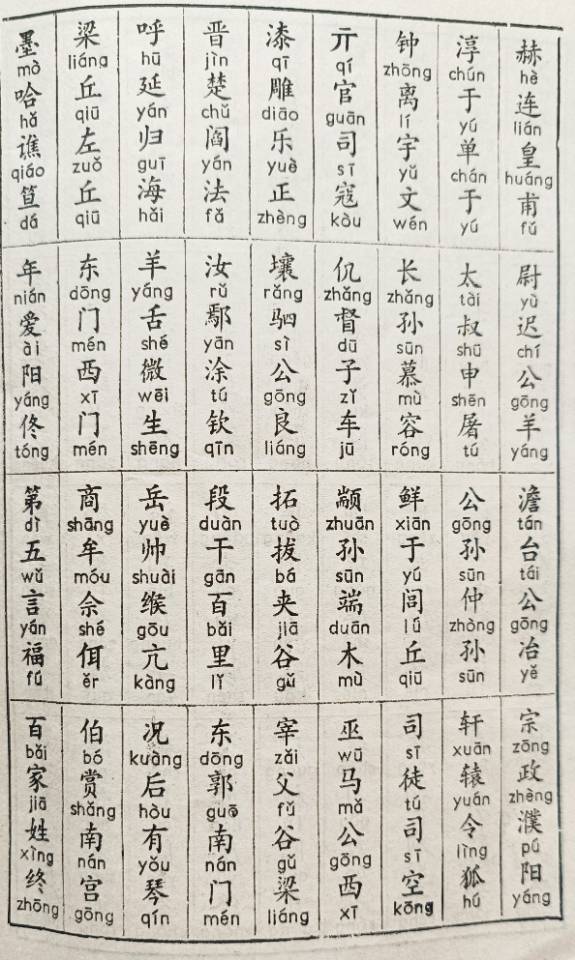 赫 hè 连 lián 皇 huáng 甫 fǔ
尉 yù 迟 chí 公 gōng 羊 yáng
澹 tán 台 tái 公 gōng 冶 yě
宗 zōng 政 zhèng 濮 pú 阳 yáng
淳 chún 于 yú 单 chán 于 yú
太 tài 叔 shū 申 shēn 屠 tú
公 gōng 孙 sūn 仲 zhòng 孙 sūn
轩 xuān 辕 yuán 令 lìng 狐 hú
钟 zhōng 离 lí 宇 yǔ 文 wén
长 zhǎng 孙 sūn 慕 mù 容 róng
鲜 xiān 于 yú 闾 lǘ 丘 qiū
司 sī 徒 tú 司 sī 空 kōng
亓 qí 官 guān 司 sī 寇 kòu
仉 zhǎng 督 dū 子 zǐ 车 jū
颛 zhuān 孙 sūn 端 duān 木 mù
巫 wū 马 mǎ 公 gōng 西 xī
漆 qī 雕 diāo 乐 yuè 正 zhèng
壤 rǎng 驷 sì 公 gōng 良 liáng
拓 tuò 拔 bá 夹 jiā 谷 gǔ
宰 zǎi 父 fǔ 谷 gǔ 梁 liáng
晋 jìn 楚 chǔ 阎 yán 法 fǎ
汝 rǔ 鄢 yān 涂 tú 钦 qīn
段 duàn 干 gān 百 bǎi 里 lǐ
东 dōng 郭 guō 南 nán 门 mén
呼 hū 延 yán 归 guī 海 hǎi
羊 yáng 舌 shé 微 wēi 生 shēng
岳 yuè 帅 shuài 缑 gōu 亢 kàng
况 kuàng 后 hòu 有 yǒu 琴 qín
梁 liáng 丘 qiū 左 zuǒ 丘 qiū
东 dōng 门 mén 西 xī 门 mén
商 shāng 牟 móu 佘 shé 佴 ěr
伯 bó 赏 shǎng 南 nán 宫 gōng
墨 mò 哈 hǎ 谯 qiáo 笪 dá
年 nián 爱 ài 阳 yáng 佟 tóng
第 dì 五 wǔ 言 yán 福 fú
百 bǎi 家 jiā 姓 xìng 终 zhōng